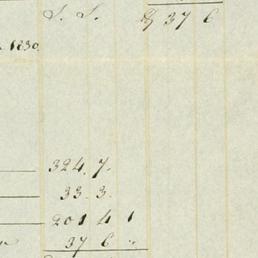 S. S. 37 6
1830
324. 7.
33. 3.
201 4 1
37 6 "